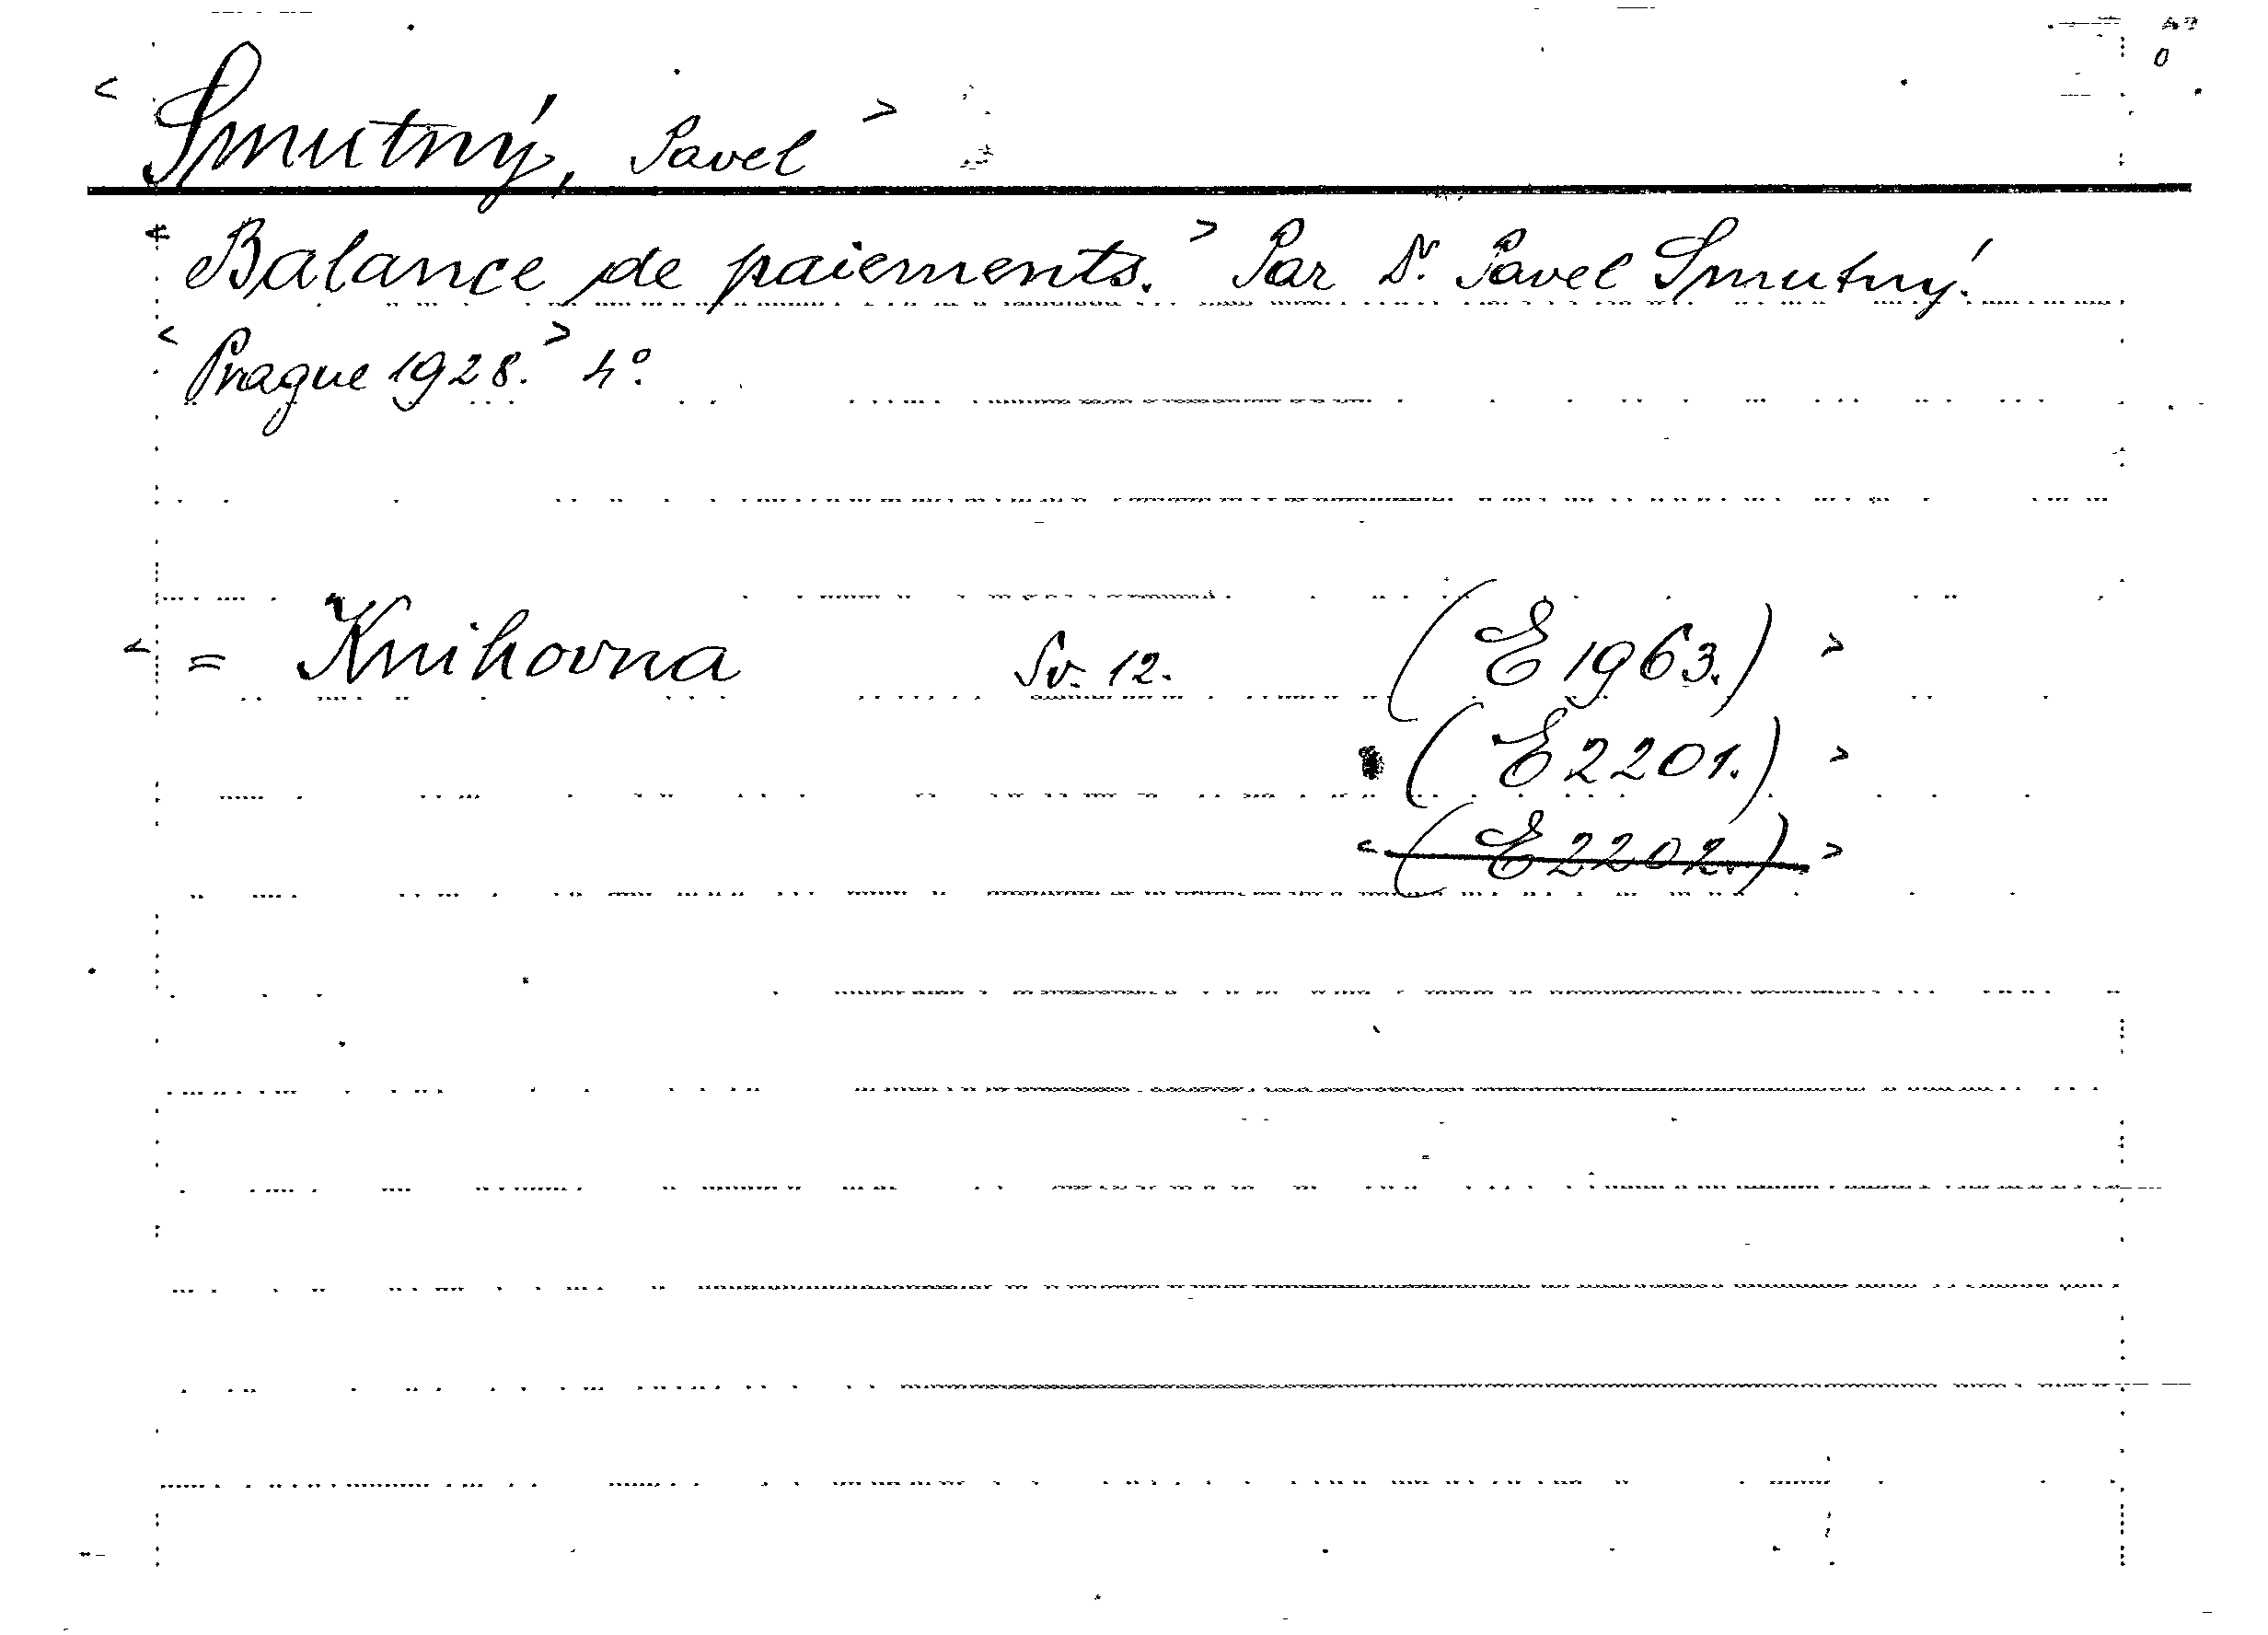 < Smutný, Pavel >
< Balance de paiements. > Par Dr. Pavel Smutný.
< Prague 1928. > 4°.
< = Knihovna Sv. 12. (E 1963.) >
(E 2201.) >
< (E 2202.) >